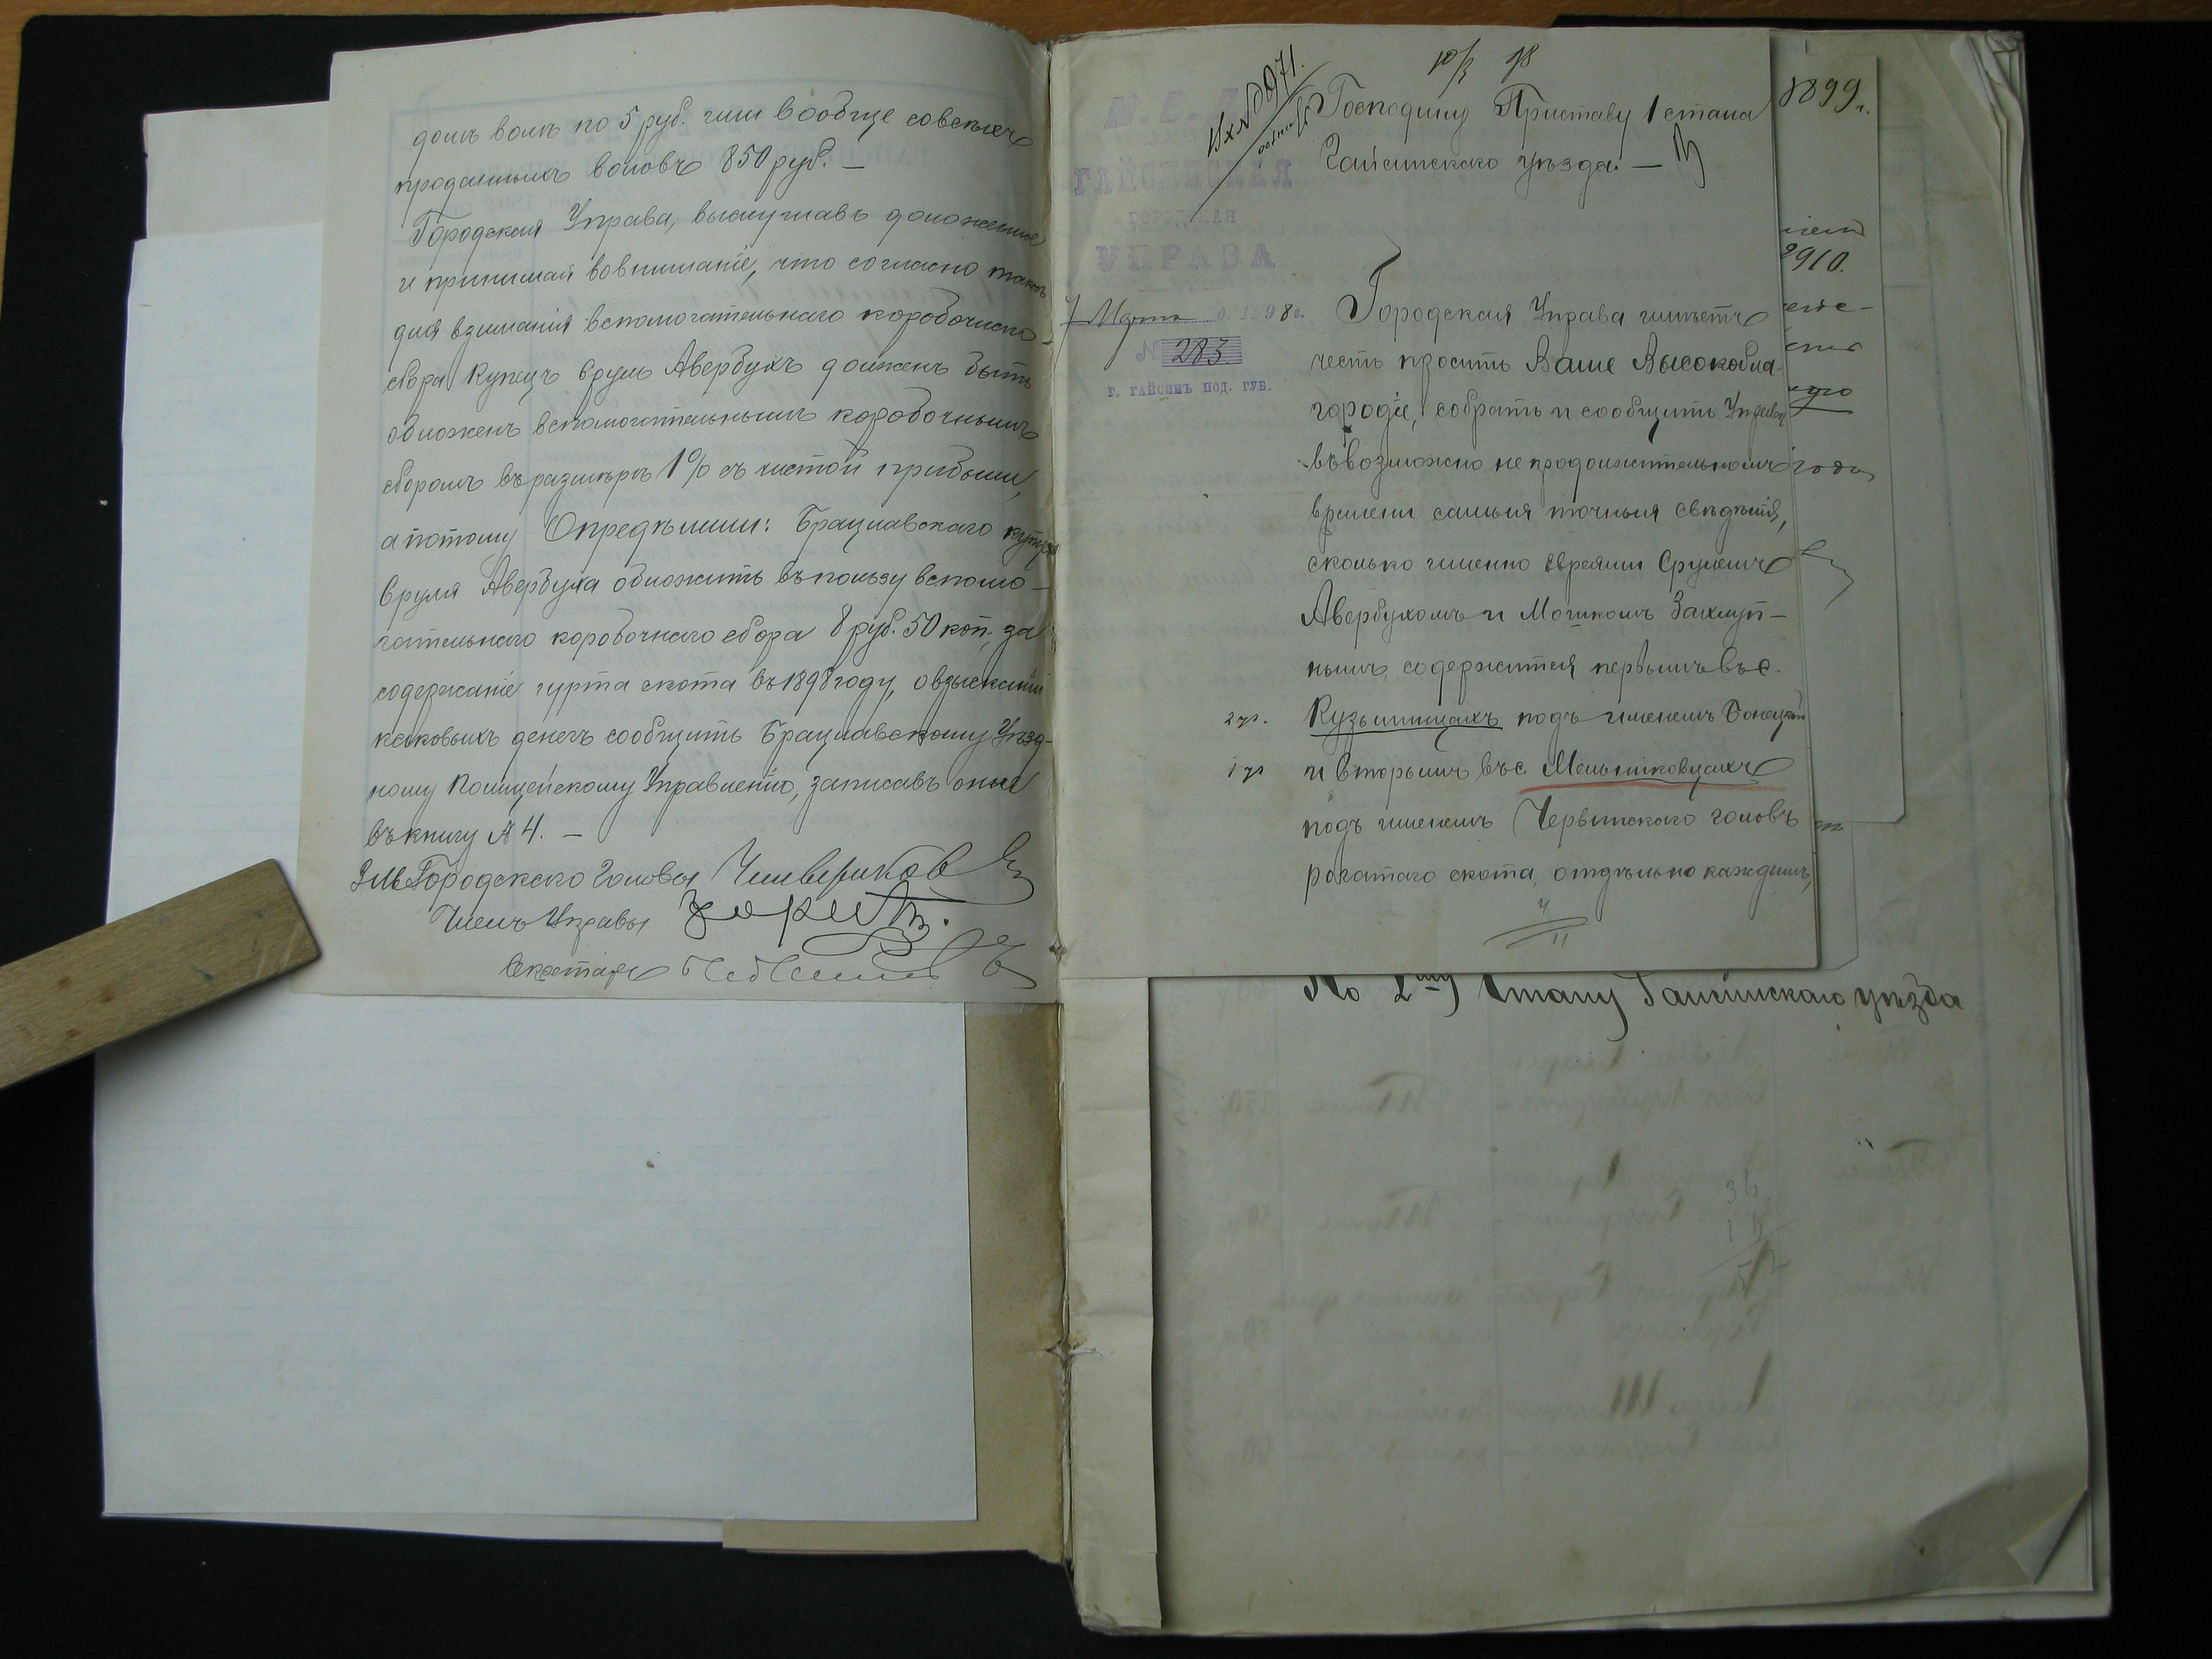 домъ волѣ по 5 руб. или вообще со всѣхъ
проданныхъ воловъ 850 руб. —
Городская Управа, выслушавъ доложенное
и принимая во вниманіе, что согласно таксѣ
для взиманія вспомогательнаго коробочнаго
сбора купецъ Сруль Авербухъ долженъ быть
обложенъ вспомогательнымъ коробочнымъ
сборомъ въ размѣрѣ 1% съ чистой прибыли,
а потому Опредѣлили: Брацлавскаго купца
Сруля Авербуха обложить въ пользу вспомо-
гательнаго коробочнаго сбора 8 руб. 50 коп., за
содержаніе гурта скота въ 1898 году, о взысканіи
каковыхъ денегъ сообщить Брацлавскому Уѣзд-
ному Полицейскому Управленію, записавъ оные
въ книгу А 4. —
Городского Головы
Членъ Управы
Секретарь
Вх. № 971.
10/3 98
Господину Приставу 1 стана
Гайсинскаго уѣзда. —
М. В. Д.
ГАЙСИНСКАЯ
ГОРОДСКАЯ
УПРАВА
7 Марта д. 1898 г.
№ 283
Г. ГАЙСИНЪ ПОД. ГУБ.
Городская Управа имѣетъ
честь просить Ваше Высокобла-
городіе, собрать и сообщить Управѣ
въ возможно непродолжительномъ
времени самыя точныя свѣдѣнія,
сколько именно евреями Срулемъ
Авербухомъ и Мошкомъ
нымъ содержится первымъ въ с.
2 гур. Кузьминцахъ подъ именемъ
1 гур и вторымъ въ с Мельниковцахъ
подъ именемъ Червинскаго головъ
рогатаго скота, отдѣльно каждымъ,
1899 г.
2910.
года
По 2му Стану Гайсинскаго уѣзда